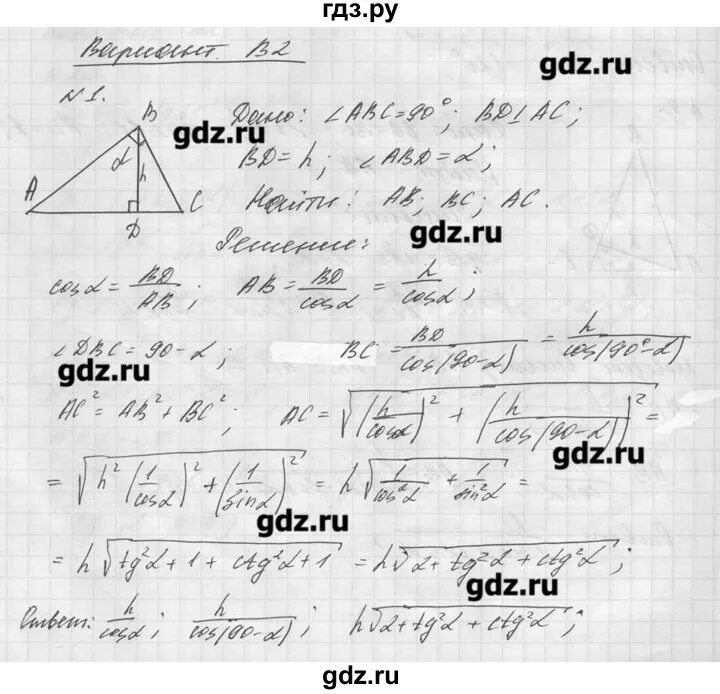 гдз.ру
Вариант В2
gdz.ru
№1.
Дано: ∠ABC=90°; BD⊥AC;
gdz.ru
BD=h; ∠ABD=α;
Найти: AB; BC; AC.
gdz.ru
A B C D α h
Решение:
cosα = BD/AB; AB = BD/cosα = h/cosα;
∠DBC = 90-α; BC = BD/cos(90-α) = h/cos(90°-α)
gdz.ru
AC² = AB² + BC²; AC = √((h/cosα)² + (h/cos(90-α))²) =
gdz.ru
= √(h²(1/cosα)² + (1/sinα)²) = h√(1/cos²α + 1/sin²α) =
gdz.ru
= h√(tg²α + 1 + ctg²α + 1) = h√(2 + tg²α + ctg²α);
gdz.ru
Ответ: h/cosα; h/cos(90-α); h√(2+tg²α + ctg²α);
gdz.ru